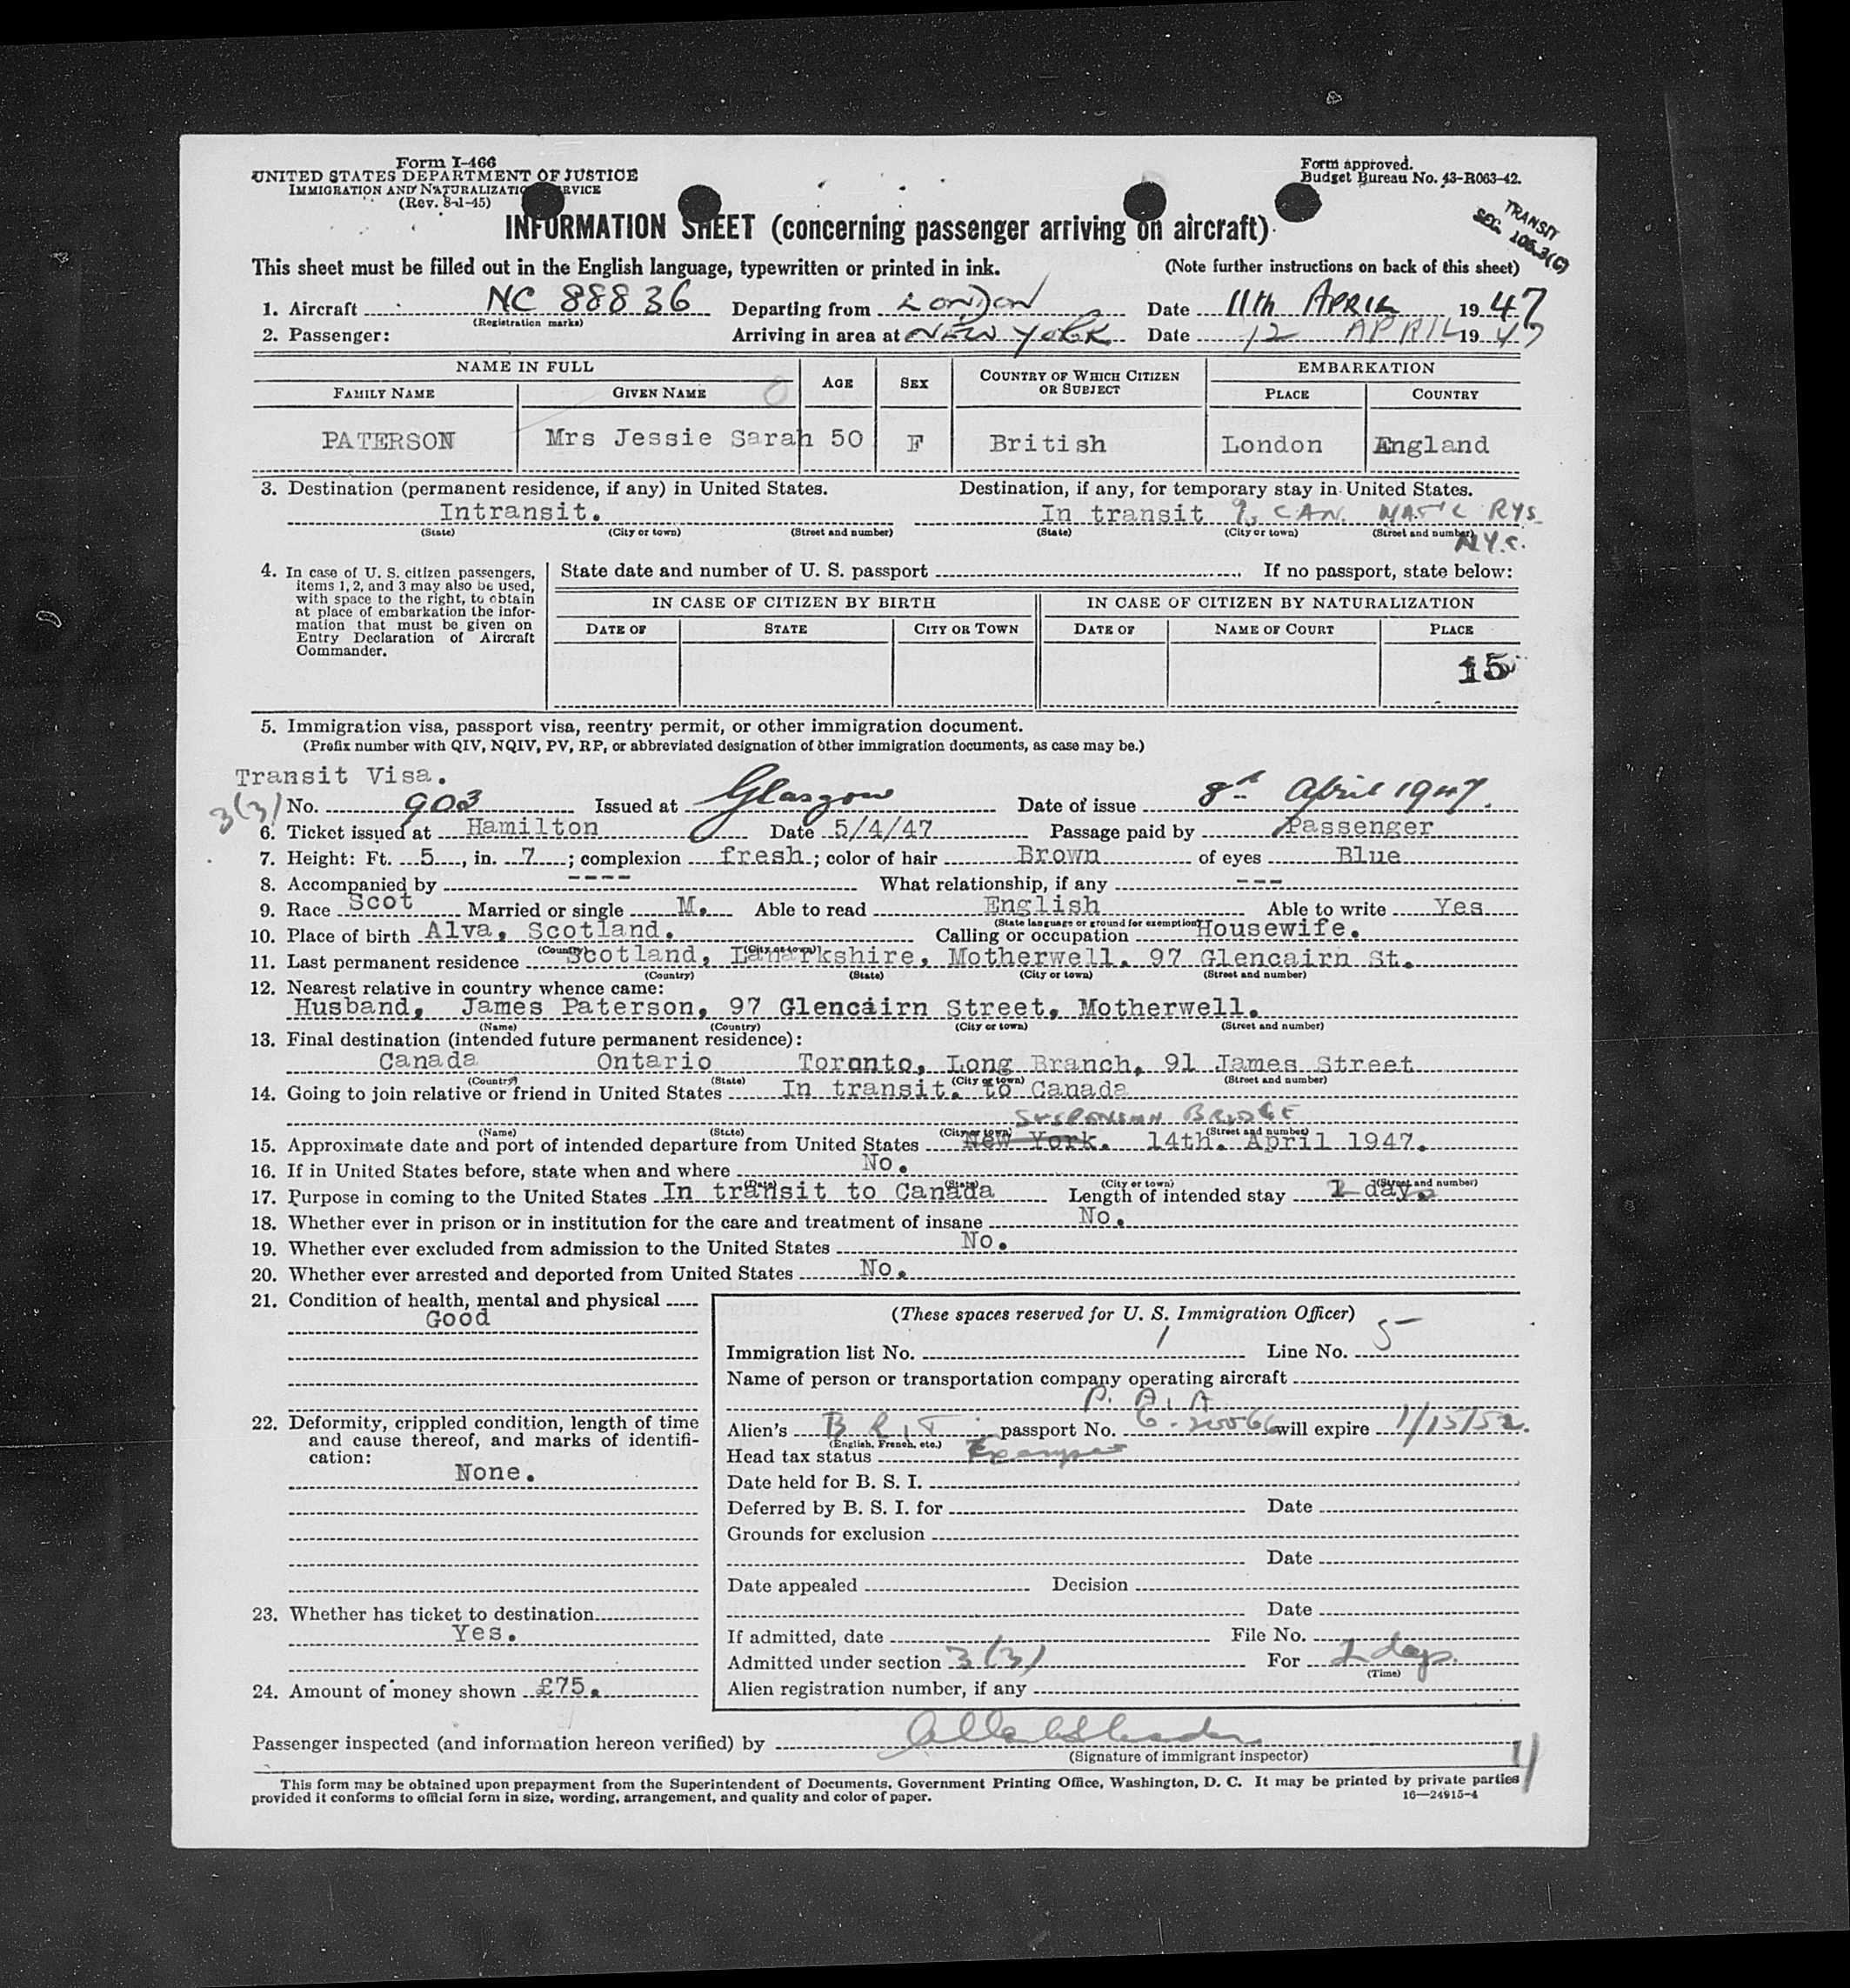 Form I-466
UNITED STATES DEPARTMENT OF JUSTICE
IMMIGRATION AND NATURALIZATION SERVICE
(Rev. 8-1-45)
Form approved.
Budget Bureau No. 43-R063-42.
TRANSIT
SEC. 106.3(C)
INFORMATION SHEET (concerning passenger arriving on aircraft)
This sheet must be filled out in the English language, typewritten or printed in ink. (Note further instructions on back of this sheet)
1. Aircraft NC 88836 Departing from London Date 11th APRIL 1947
(Registration marks)
2. Passenger: Arriving in area at NEW YORK Date 12 APRIL 1947
NAME IN FULL AGE SEX COUNTRY OF WHICH CITIZEN OR SUBJECT EMBARKATION
FAMILY NAME GIVEN NAME PLACE COUNTRY
PATERSON Mrs Jessie Sarah 50 F British London England
3. Destination (permanent residence, if any) in United States. Destination, if any, for temporary stay in United States.
Intransit. In transit % CAN. NAT'L RYS
(State) (City or town) (Street and number) (State) (City or town) (Street and number)
N.Y.C.
4. In case of U. S. citizen passengers, items 1, 2, and 3 may also be used, with space to the right, to obtain at place of embarkation the information that must be given on Entry Declaration of Aircraft Commander.
State date and number of U. S. passport If no passport, state below:
IN CASE OF CITIZEN BY BIRTH IN CASE OF CITIZEN BY NATURALIZATION
DATE OF STATE CITY OR TOWN DATE OF NAME OF COURT PLACE
15
5. Immigration visa, passport visa, reentry permit, or other immigration document.
(Prefix number with QIV, NQIV, PV, RP, or abbreviated designation of other immigration documents, as case may be.)
Transit Visa.
3(3) No. 903 Issued at Glasgow Date of issue 8th April 1947.
6. Ticket issued at Hamilton Date 5/4/47 Passage paid by Passenger
7. Height: Ft. 5, in. 7; complexion fresh; color of hair Brown of eyes Blue
8. Accompanied by ---- What relationship, if any ---
9. Race Scot Married or single M. Able to read English Able to write Yes
(State language or ground for exemption)
10. Place of birth Alva, Scotland. Calling or occupation Housewife.
(Country) (City or town)
11. Last permanent residence Scotland, Lanarkshire, Motherwell. 97 Glencairn St.
(Country) (State) (City or town) (Street and number)
12. Nearest relative in country whence came:
Husband, James Paterson, 97 Glencairn Street, Motherwell.
(Name) (Country) (City or town) (Street and number)
13. Final destination (intended future permanent residence):
Canada Ontario Toronto, Long Branch, 91 James Street
(Country) (State) (City or town) (Street and number)
14. Going to join relative or friend in United States In transit. to Canada
SUSPENSION BRIDGE
(Name) (State) (City or town) (Street and number)
15. Approximate date and port of intended departure from United States New York. 14th. April 1947.
16. If in United States before, state when and where No.
(Date) (State) (City or town) (Street and number)
17. Purpose in coming to the United States In transit to Canada Length of intended stay 2 day.
18. Whether ever in prison or in institution for the care and treatment of insane No.
19. Whether ever excluded from admission to the United States No.
20. Whether ever arrested and deported from United States No.
21. Condition of health, mental and physical
Good
22. Deformity, crippled condition, length of time and cause thereof, and marks of identification:
None.
23. Whether has ticket to destination
Yes.
24. Amount of money shown £75.
(These spaces reserved for U. S. Immigration Officer)
Immigration list No. 1 Line No. 5
Name of person or transportation company operating aircraft
P. A. A
Alien's BRIT. passport No. will expire 1/15/52.
(English, French, etc.)
Head tax status Exempt
Date held for B. S. I.
Deferred by B. S. I. for Date
Grounds for exclusion
Date
Date appealed Decision
Date
If admitted, date File No.
Admitted under section 3(3) For 2 days.
(Time)
Alien registration number, if any
Passenger inspected (and information hereon verified) by
(Signature of immigrant inspector)
This form may be obtained upon prepayment from the Superintendent of Documents, Government Printing Office, Washington, D. C. It may be printed by private parties
provided it conforms to official form in size, wording, arrangement, and quality and color of paper.
16—24915-4